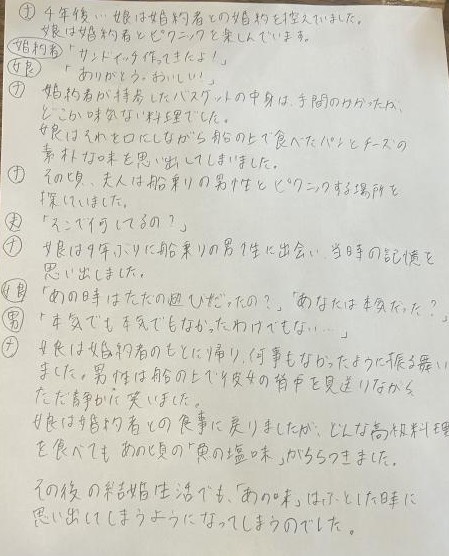 ナ 4年後… 娘は婚約者との婚約を控えていました。
娘は婚約者とピクニックを楽しんでいます。
婚約者「サンドイッチ作ってきたよ!」
娘「ありがとう。おいしい!」
ナ 婚約者が持参したバスケットの中身は、手間のかかったが、
どこか味気ない料理でした。
娘はそれを口にしながら船の上で食べたパンとチーズの
素朴な味を思い出してしまいました。
ナ その頃、夫人は船乗りの男性とピクニックする場所を
探していました。
夫「そこで何してるの?」
ナ 娘は4年ぶりに船乗りの男性に出会い、当時の記憶を
思い出しました。
娘「あの時はただの遊びだったの?」「あなたは本気だった?」
男「本気でも本気でもなかったわけでもない…」
ナ 娘は婚約者のもとに帰り、何事もなかったように振る舞い
ました。男性は船の上で彼女の背中を見送りながら
ただ静かに笑いました。
娘は婚約者との食事に戻りましたが、どんな高級料理
を食べてもあの頃の「魚の塩味」がちらつきました。
その後の結婚生活でも、「あの味」はふとした時に
思い出してしまうようになってしまうのでした。